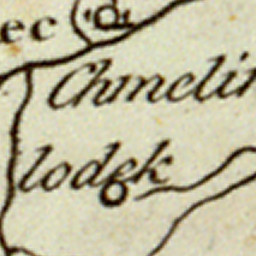 ec
Chmelin
lodek